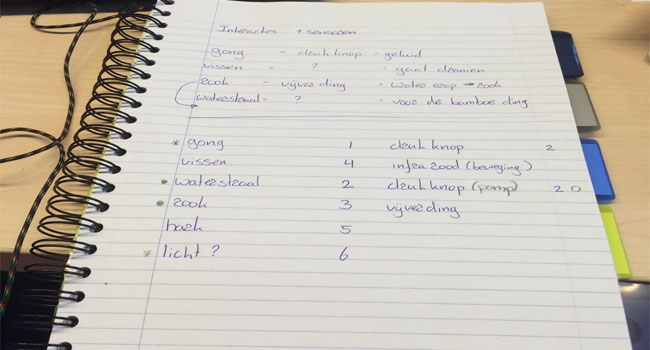 Interacties + sensoren
gong - drukknop - geluid
vissen - ? - gaat draaien
rook - vijver ding - water erop → rook
waterstraal - ? - voor de bamboe ding
* gong 1 drukknop 2
vissen 4 infra rood (beweging)
• waterstraal 2 drukknop (pomp) 2 0
• rook 3 vijver ding
hark 5
* licht? 6